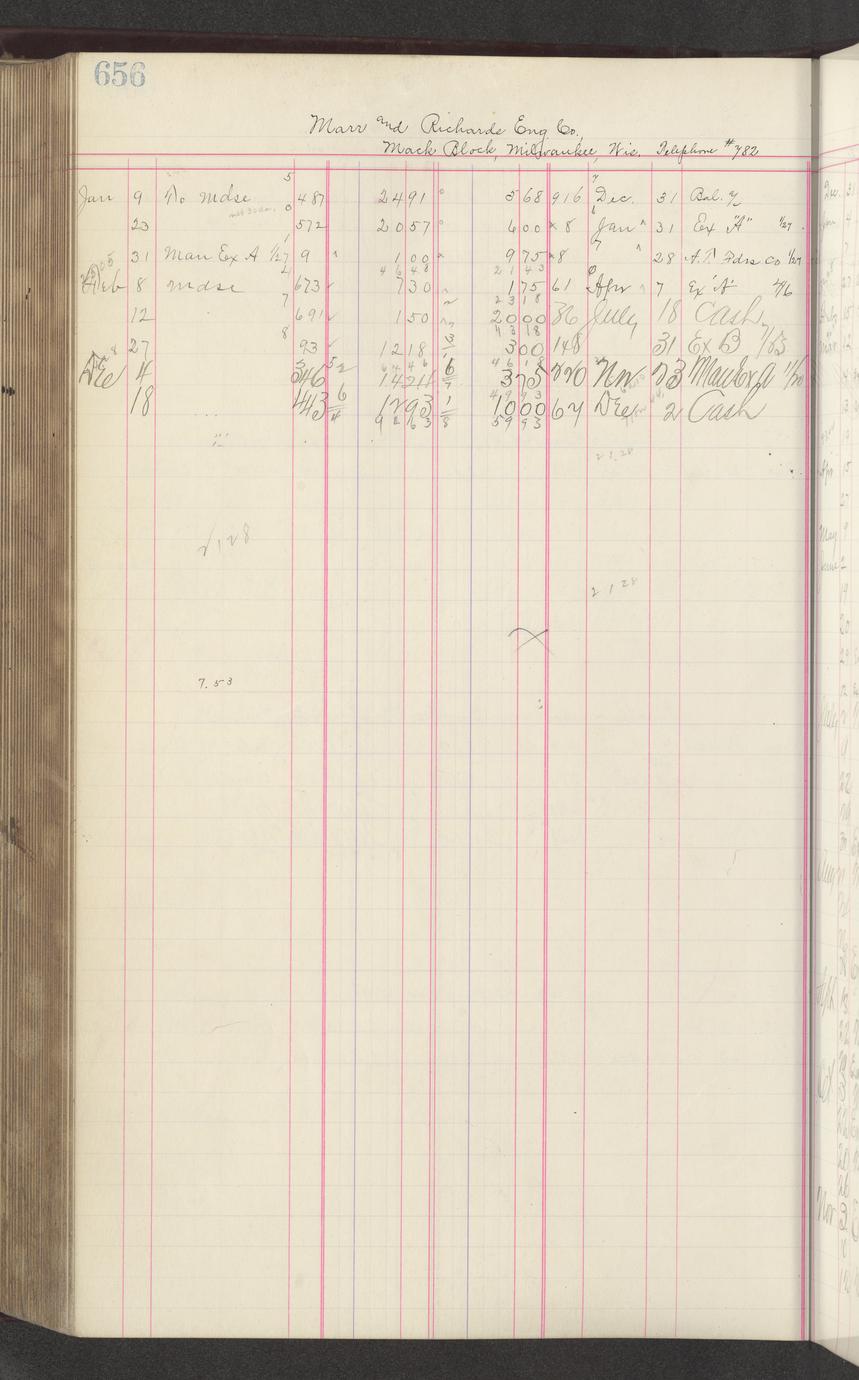 656
Marr and Richards Eng. Co.,
Mack Block, Milwaukee, Wis. Telephone # 782
Jan 9 To mdse 487 2491 568 916 Dec. 31 Bal.
23 572 2057 600 8 Jan 31 Ex "A" 1/27
31 Man Ex A 1/27 9 100 975 8 28 Fdrs Co 1/27
4648 2143
Feb 8 mdse 673 730 175 61 Apr 7 Ex "A"
2318
12 691 150 2000 36 July 18 Cash
4318
27 93 1218 300 148 31 Ex B
6446 4618
Dec 4 346 52 375 220 Nov 23 Man Ex A 11/20
4993
18 443 1293 1000 67 Dec 2 Cash
9263 5993
2128
2128
2128
7.53